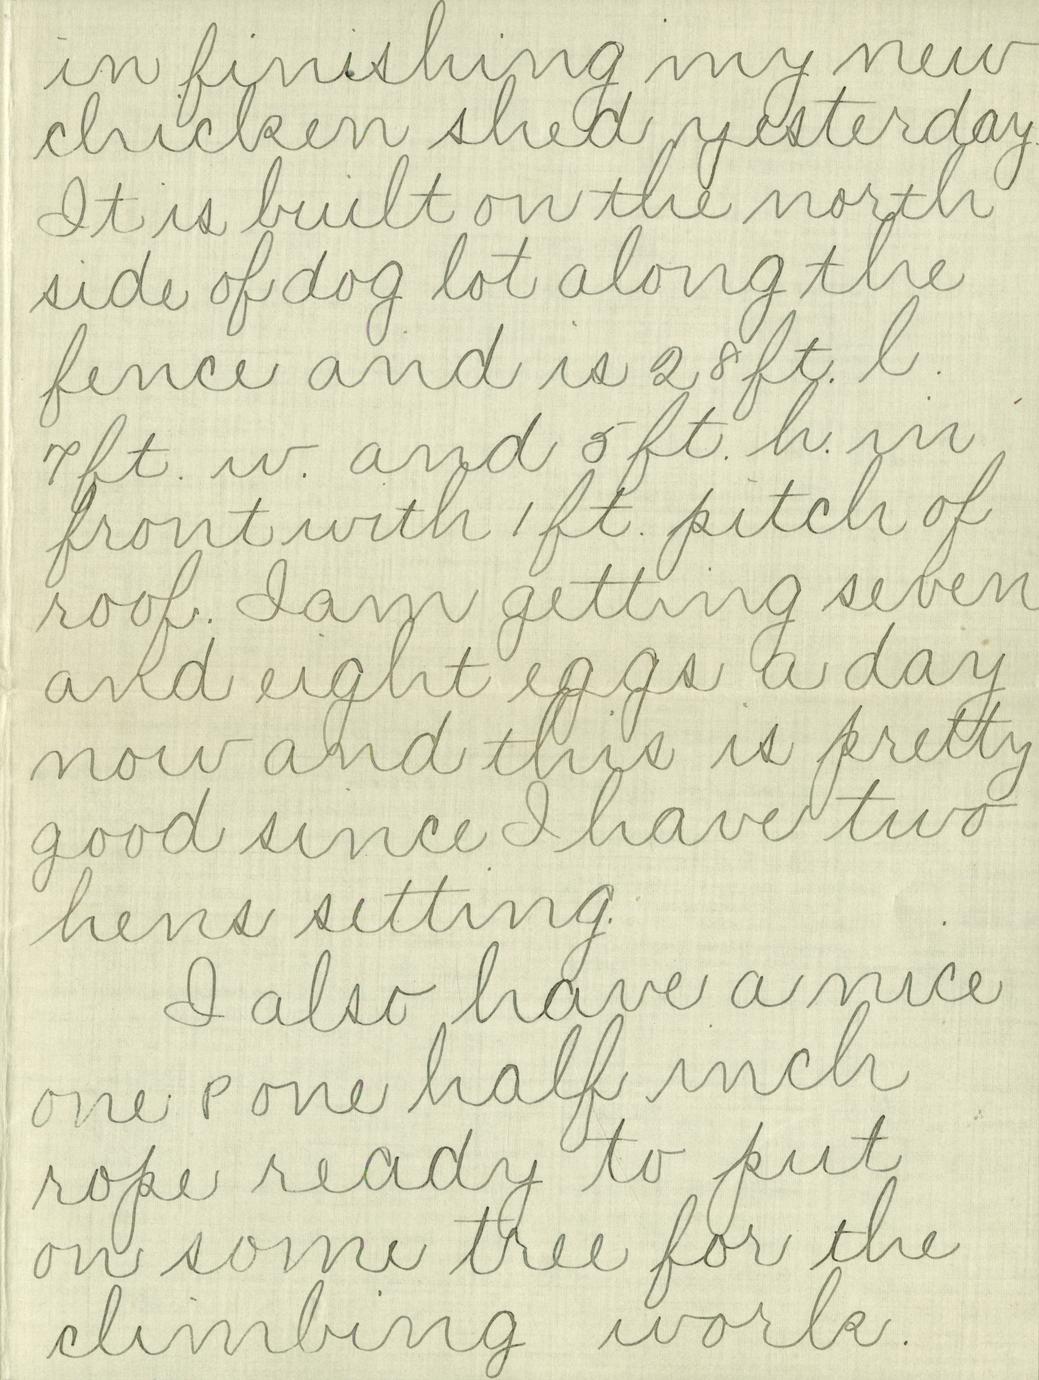 in finishing my new
chicken shed yesterday.
It is built on the north
side of dog lot along the
fence and is 28 ft. l.
7 ft. w. and 5 ft. h. in
front with 1 ft. pitch of
roof. I am getting seven
and eight eggs a day
now and this is pretty
good since I have two
hens setting.
I also have a nice
one & one half inch
rope ready to put
on some tree for the
climbing work.